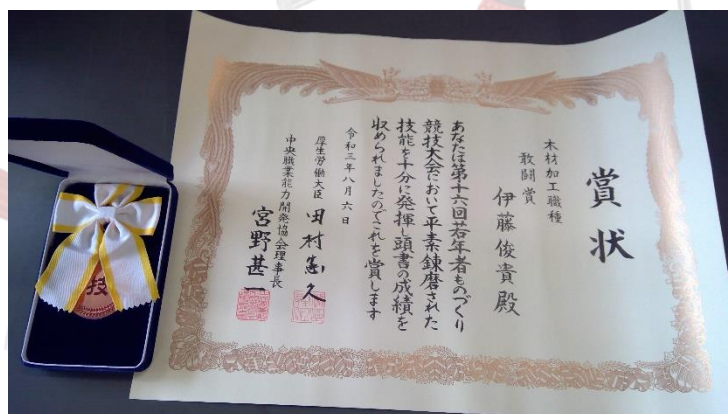 賞状
木材加工職種
敢闘賞
伊藤俊貴殿
あなたは第十六回若年者ものづくり
競技大会において平素錬磨された
技能を十分に発揮し頭書の成績を
収められましたのでこれを賞します
令和三年八月六日
厚生労働大臣 田村憲久
中央職業能力開発協会理事長
宮野甚一
技